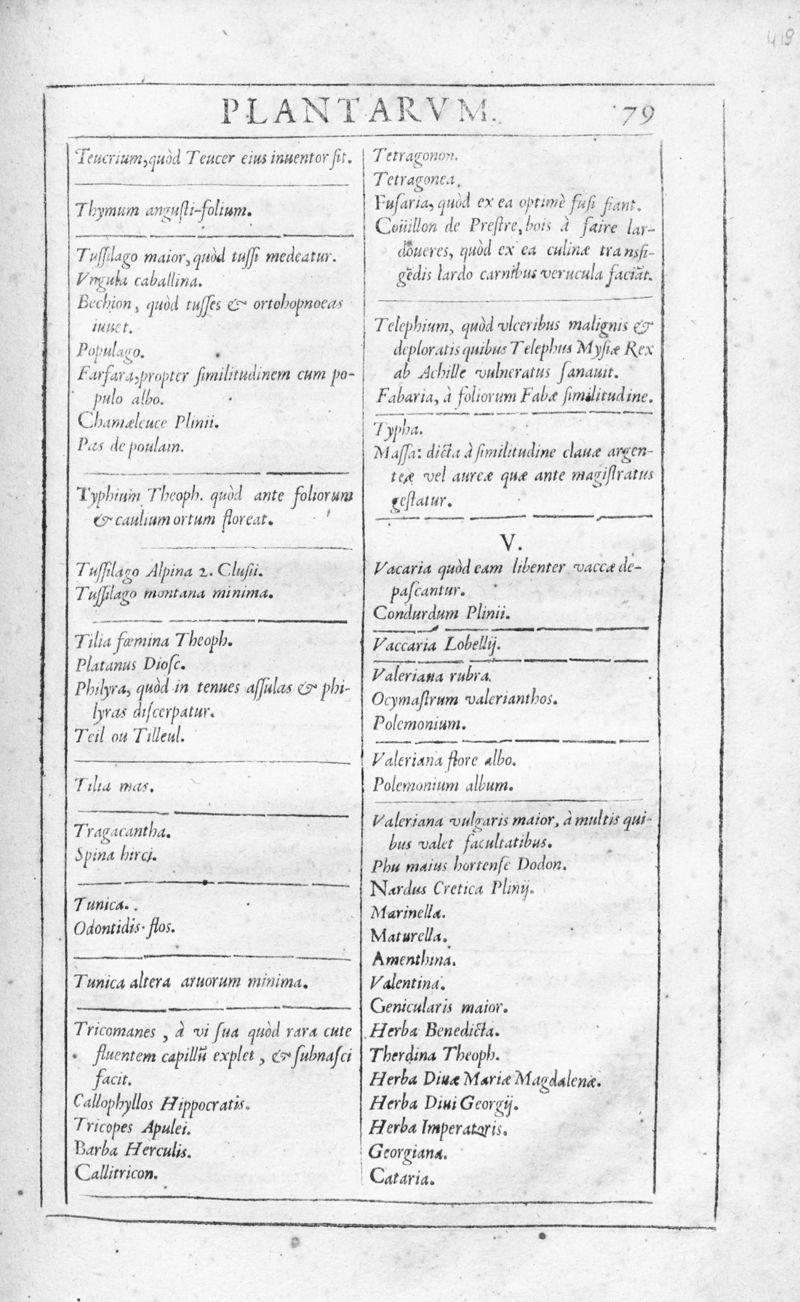 419
PLANTARVM. 79
Teucrium, quòd Teucer eius inuentor ſit.
Thymum anguſti-folium.
Tuſſilago maior, quòd tuſſi medeatur.
Vngula caballina.
Bechion, quòd tuſſes & ortohopnoeas
iuuet.
Populago.
Farfara, propter ſimilitudinem cum po-
pulo albo.
Chamæleuce Plinii.
Pas de poulain.
Typhium Theoph. quòd ante foliorum
& caulium ortum floreat.
Tuſſilago Alpina 2. Cluſii.
Tuſſilago montana minima.
Tilia fœmina Theoph.
Platanus Dioſc.
Philyra, quòd in tenues aſſulas & phi-
lyras diſcerpatur.
Teil ou Tilleul.
Tilia mas.
Tragacantha.
Spina hirci.
Tunica.
Odontidis flos.
Tunica altera aruorum minima.
Tricomanes, à vi ſua quòd rara cute
fluentem capillũ explet, & ſubnaſci
facit.
Callophyllos Hippocratis.
Tricopes Apulei.
Barba Herculis.
Callitricon.
Tetragonon.
Tetragonea.
Fuſaria, quòd ex ea optimè fuſi fiant.
Coüillon de Preſtre, bois à faire lar-
doueres, quòd ex ea culinæ transfi-
gẽdis lardo carnibus verucula faciãt.
Telephium, quòd vlceribus malignis &
deploratis quibus Telephus Myſiæ Rex
ab Achille vulneratus ſanauit.
Fabaria, à foliorum Fabæ ſimilitudine.
Typha.
Maſſa: dicta à ſimilitudine clauæ argen-
teæ vel aureæ quæ ante magiſtratus
geſtatur.
V.
Vacaria quòd eam libenter vaccæ de-
paſcantur.
Condurdum Plinii.
Vaccaria Lobellij.
Valeriana rubra.
Ocymaſtrum valerianthos.
Polemonium.
Valeriana flore albo.
Polemonium album.
Valeriana vulgaris maior, à multis qui-
bus valet facultatibus.
Phu maius hortenſe Dodon.
Nardus Cretica Plinij.
Marinella.
Maturella.
Amenthina.
Valentina.
Genicularis maior.
Herba Benedicta.
Therdina Theoph.
Herba Diuæ Mariæ Magdalenæ.
Herba Diui Georgij.
Herba Imperatoris.
Georgiana.
Cataria.